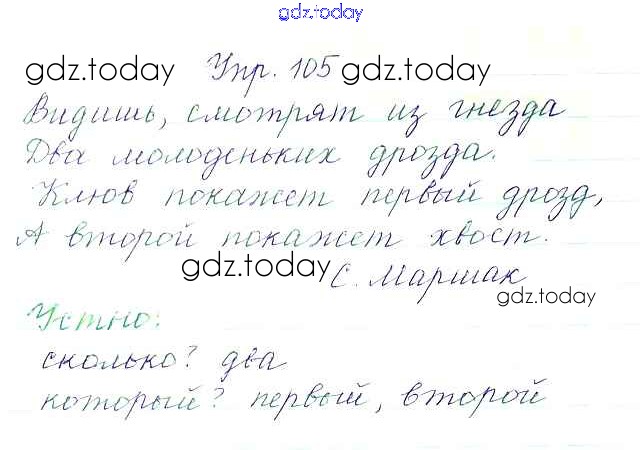 gdz.today
gdz.today Упр. 105 gdz.today
Видишь, смотрят из гнезда
Два молоденьких дрозда.
Клюв покажет первый дрозд,
А второй покажет хвост.
gdz.today С. Маршак gdz.today
Устно:
сколько? два
который? первый, второй